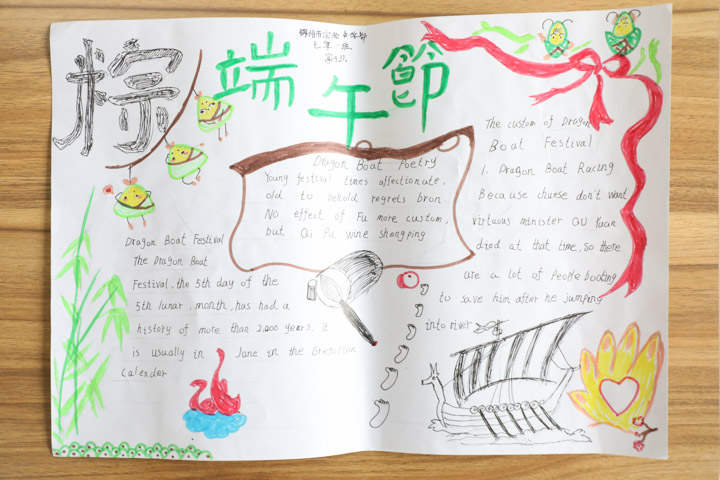 粽
端午節
七年一班
Dragon Boat Poetry
Young festival times affectionate,
old to behold regrets bron.
No effect of Fu more custom,
but Qi Pu wine shangping
Dragon Boat Festival
The Dragon Boat
Festival, the 5th day of the
5th lunar, month, has had a
history of more than 2,000 years. It
is usually in June in the Gregorian
Calender
The custom of Dragon
Boat Festival
1. Dragon Boat Racing
Because chunse don't want
virtuous minister QU Yuan
died at that time, so there
are a lot of people boating
to save him after he jumping
into river